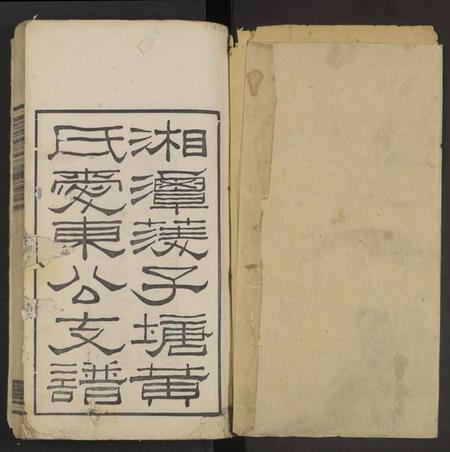 湘潭蔆子塘黃
氏愛東公支譜